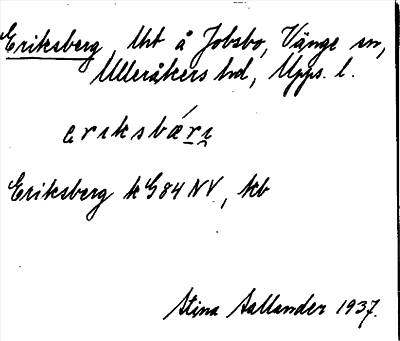 Eriksberg, lht å Jobsbo, Vänge sn,
Ulleråkers hd, Upps. l.
eriksbǽri
Eriksberg k G84 NV, kb
Stina Sallander 1937.